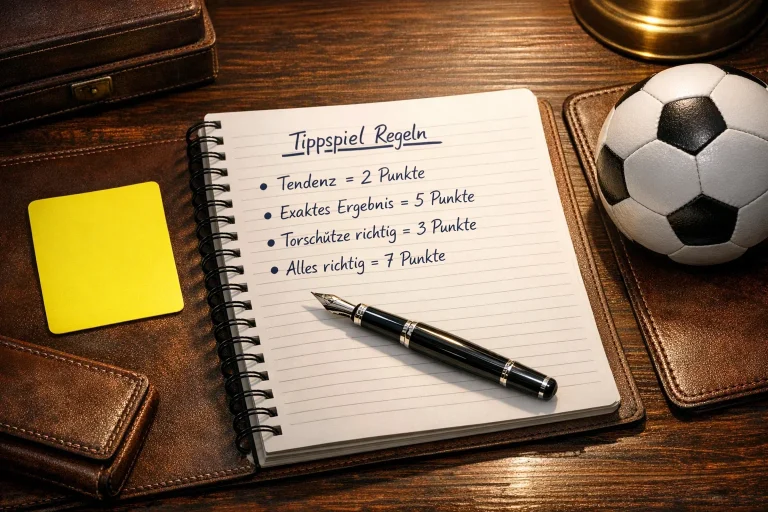 Tippspiel Regeln
• Tendenz = 2 Punkte
• Exaktes Ergebnis = 5 Punkte
• Torschütze richtig = 3 Punkte
• Alles richtig = 7 Punkte